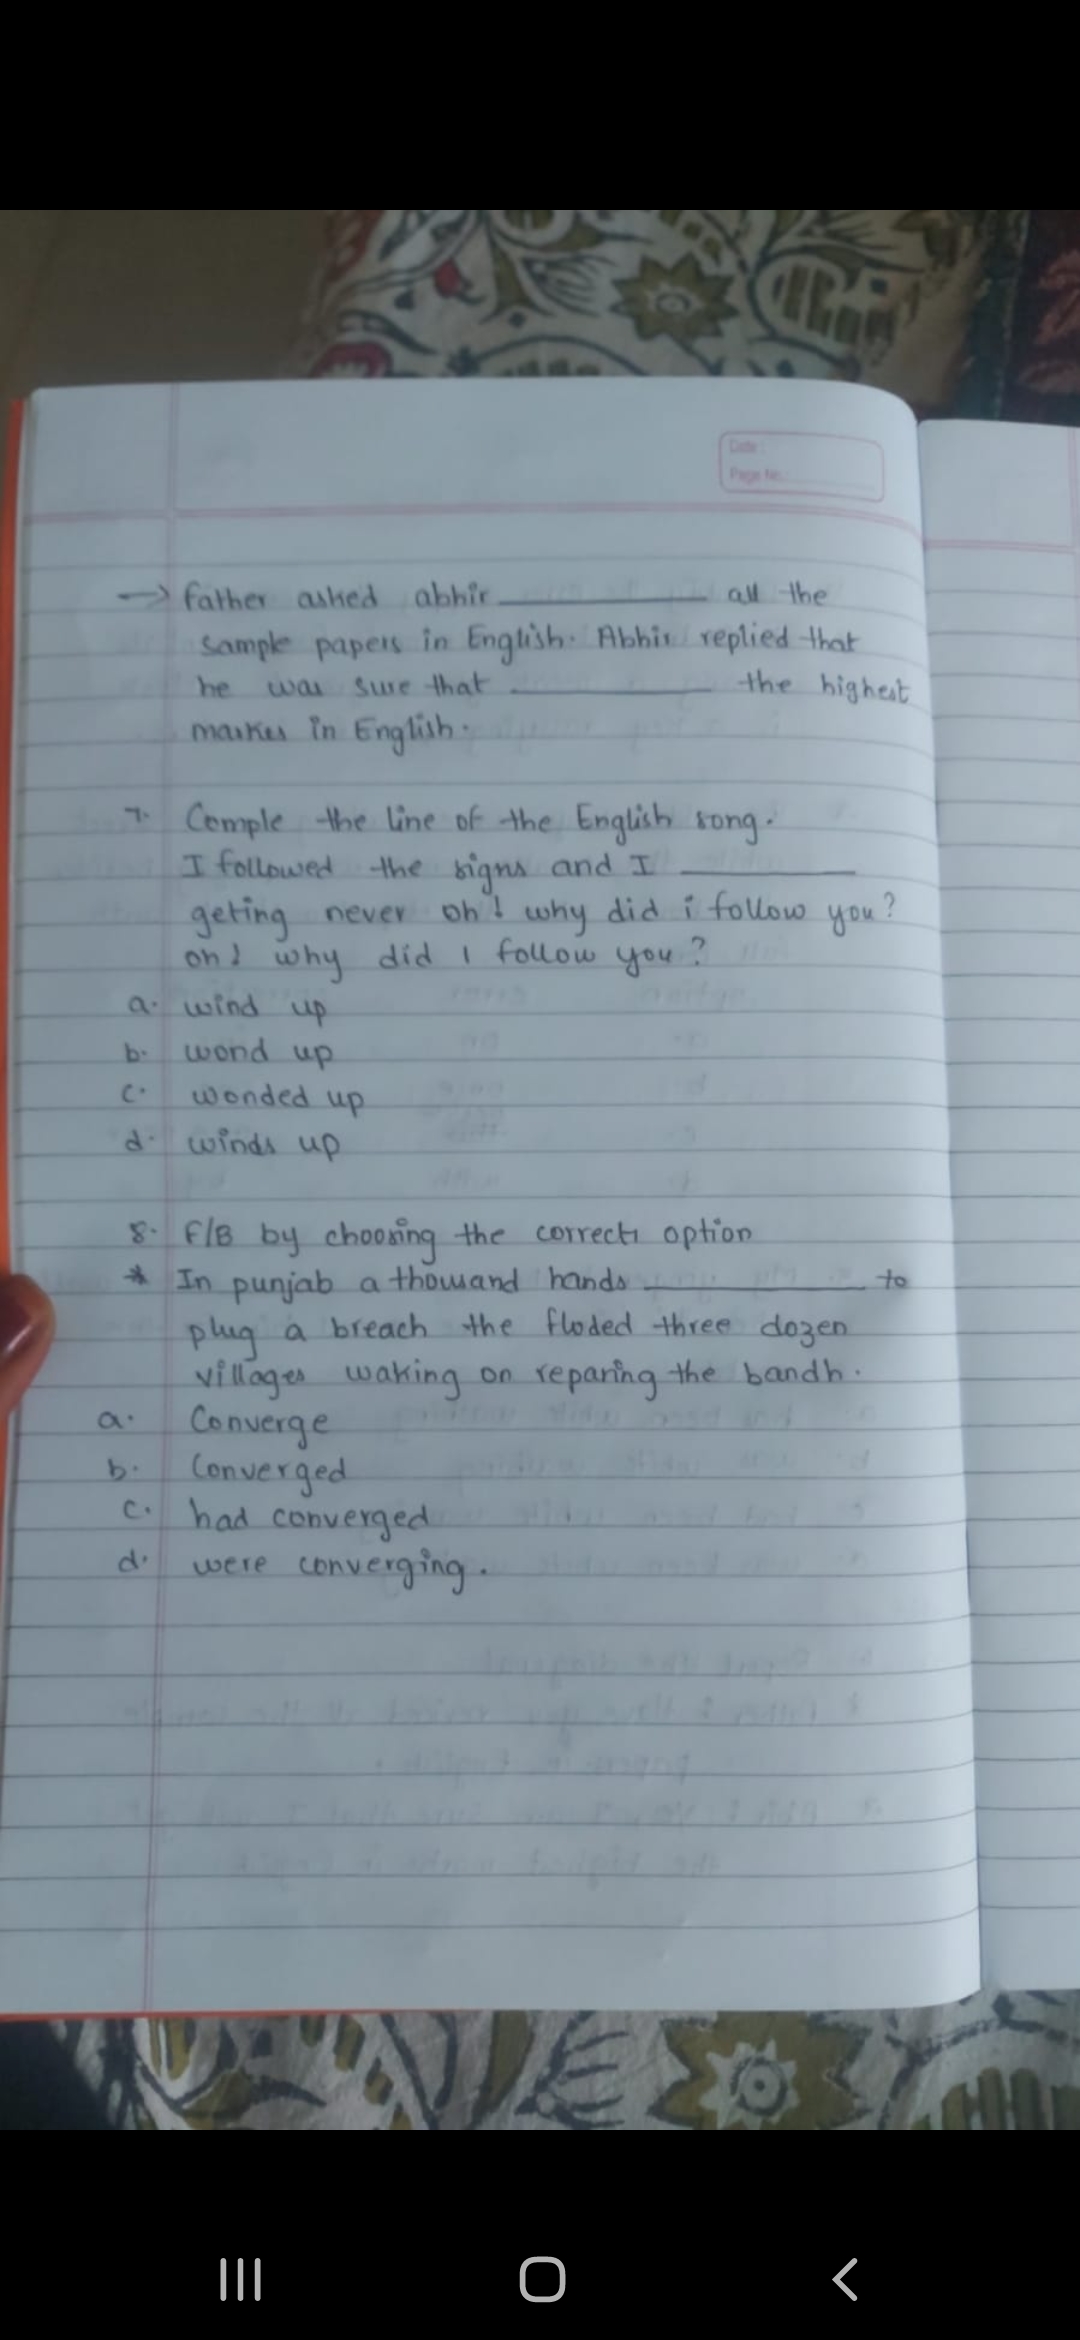 Date :
Page No.:
→ father asked abhir __________ all the
sample papers in English. Abhir replied that
he was sure that __________ the highest
markes in English.
7. Comple the line of the English song.
I followed the signs and I __________
geting never oh! why did i follow you?
oh! why did I follow you?
a. wind up
b. wond up
c. wonded up
d. winds up
8. F/B by choosing the correct option
* In punjab a thousand hands __________ to
plug a breach the floded three dozen
villages waking on reparing the bandh.
a. Converge
b. Converged
c. had converged
d. were converging.